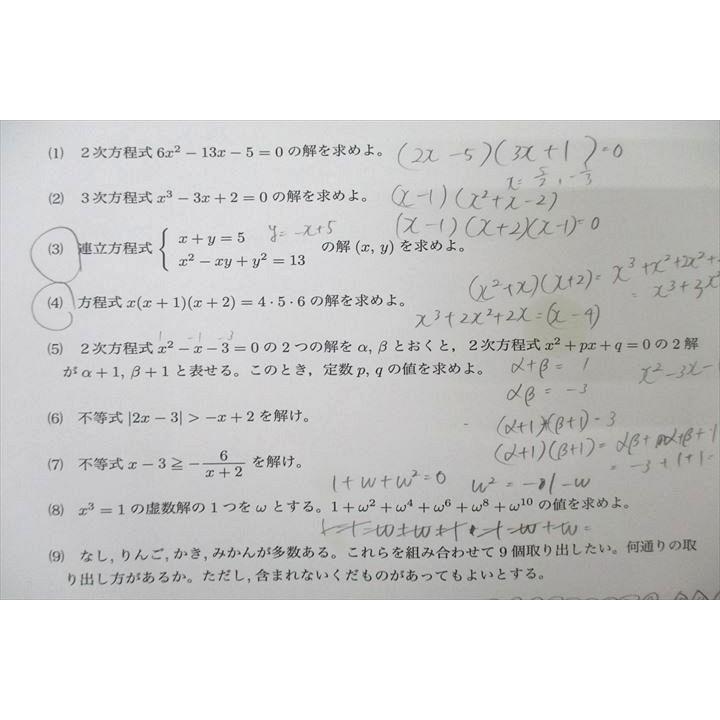 (1) 2次方程式 6x² − 13x − 5 = 0 の解を求めよ。 (2x − 5)(3x + 1) = 0
x = 5/2, −1/3
(2) 3次方程式 x³ − 3x + 2 = 0 の解を求めよ。 (x − 1)(x² + x − 2)
(x − 1)(x + 2)(x − 1) = 0
(3) 連立方程式 { x + y = 5 y = −x + 5
x² − xy + y² = 13 の解 (x, y) を求めよ。
(x² + x)(x + 2) = x³ + x² + 2x² +
= x³ + 3x²
(4) 方程式 x(x + 1)(x + 2) = 4・5・6 の解を求めよ。
x³ + 2x² + 2x = (x − 4)
1 −1 −3
(5) 2次方程式 x² − x − 3 = 0 の2つの解を α, β とおくと, 2次方程式 x² + px + q = 0 の2解
が α + 1, β + 1 と表せる。このとき, 定数 p, q の値を求めよ。 α + β = 1 x² − 3x −
αβ = −3
(6) 不等式 |2x − 3| > −x + 2 を解け。 (α+1)+(β+1) = 3
(α+1)(β+1) = αβ + α+β + 1
= −3 + 1 + 1 =
(7) 不等式 x − 3 ≧ − 6/(x + 2) を解け。
1 + w + w² = 0 w² = −1 − w
(8) x³ = 1 の虚数解の1つを ω とする。1 + ω² + ω⁴ + ω⁶ + ω⁸ + ω¹⁰ の値を求めよ。
(9) なし, りんご, かき, みかんが多数ある。これらを組み合わせて9個取り出したい。何通りの取
り出し方があるか。ただし, 含まれないくだものがあってもよいとする。